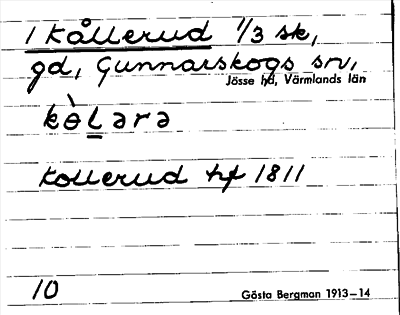 1 Kållerud 1/3 sk,
gd, Gunnarskogs sn,
Jösse hd, Värmlands län
kɵ̀Lərə
Kollerud hf 1811
10
Gösta Bergman 1913–14